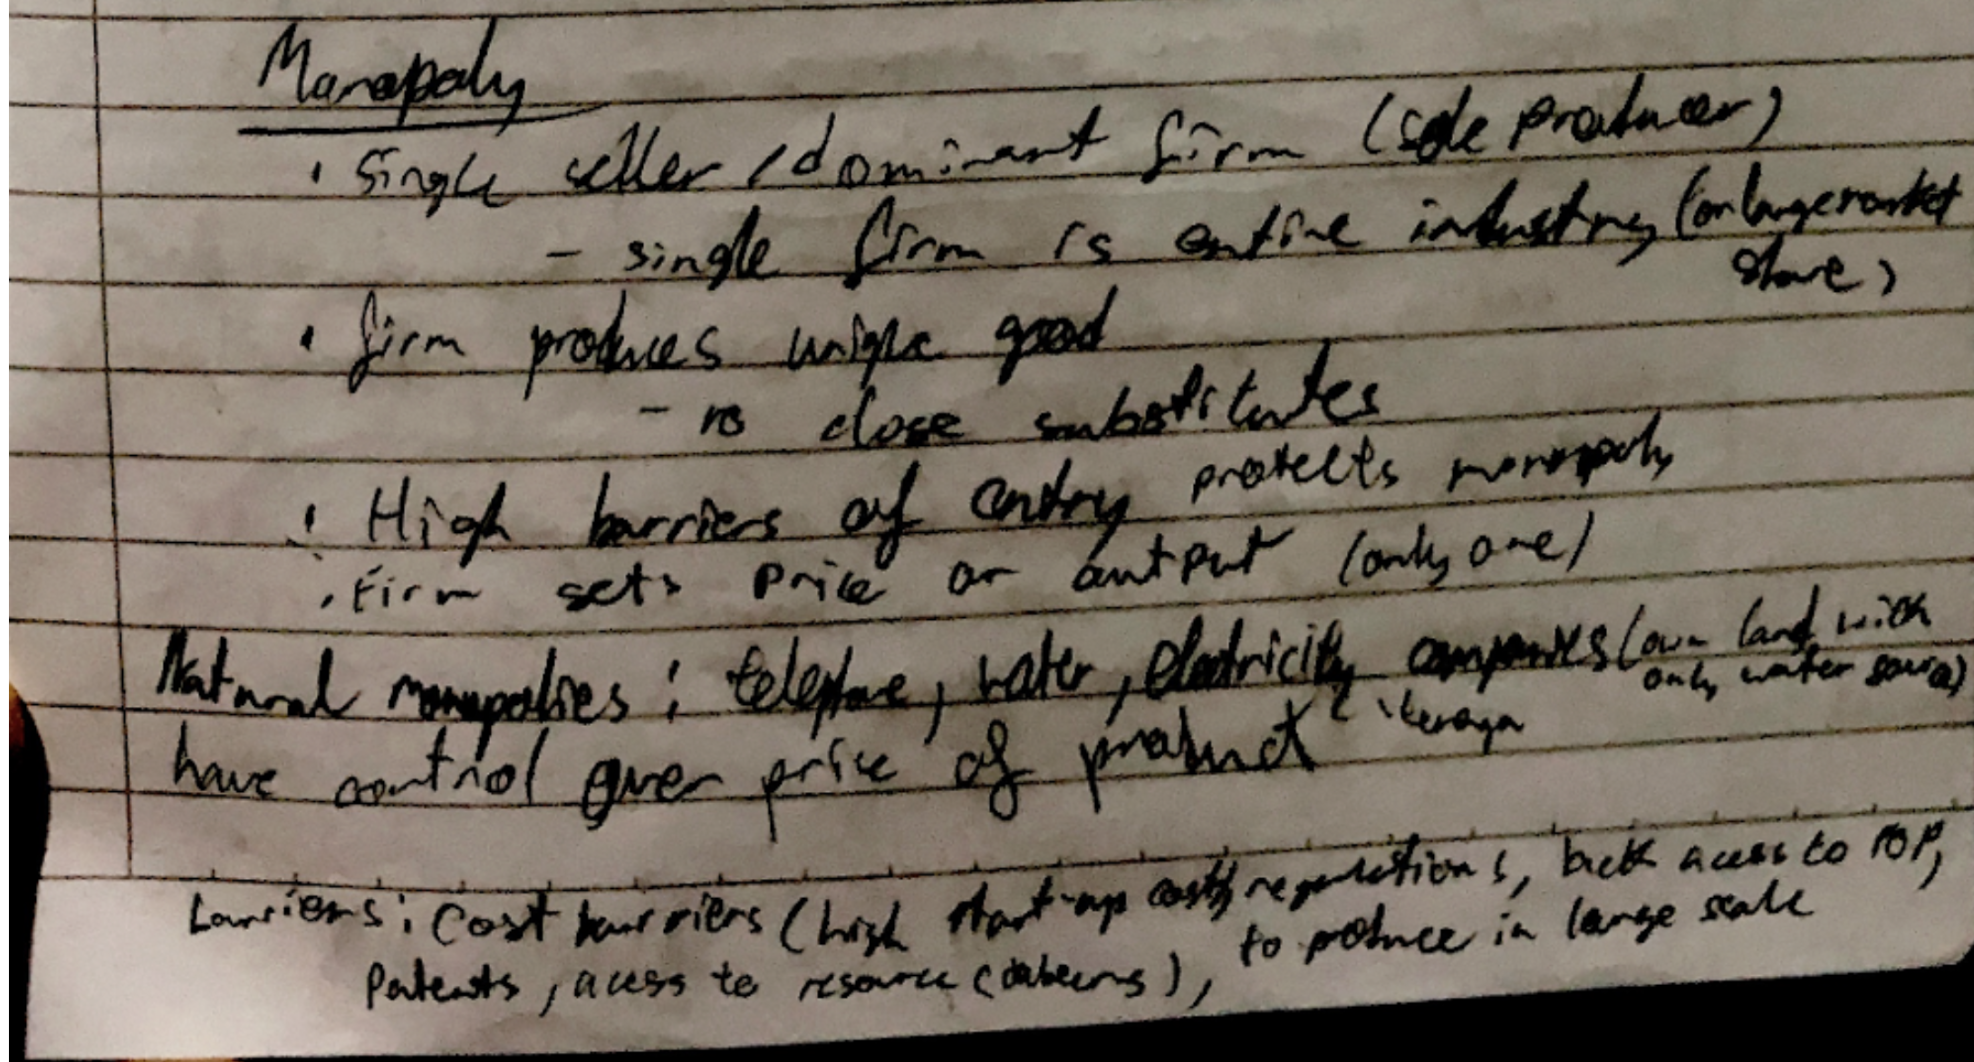 Monopoly
• Single seller / dominant firm (sole producer)
- single firm is entire industry (or large market
share)
• firm produces unique good
- no close substitutes
• High barriers of entry protects monopoly
• Firm sets price or output (only one)
Natural monopolies: telephone, water, electricity companies (own land with
only water source)
have control over price of product
barriers: Cost barriers (high start-up costs) regulations, lack acess to FOP,
Patents, acess to resource ( ), to produce in large scale